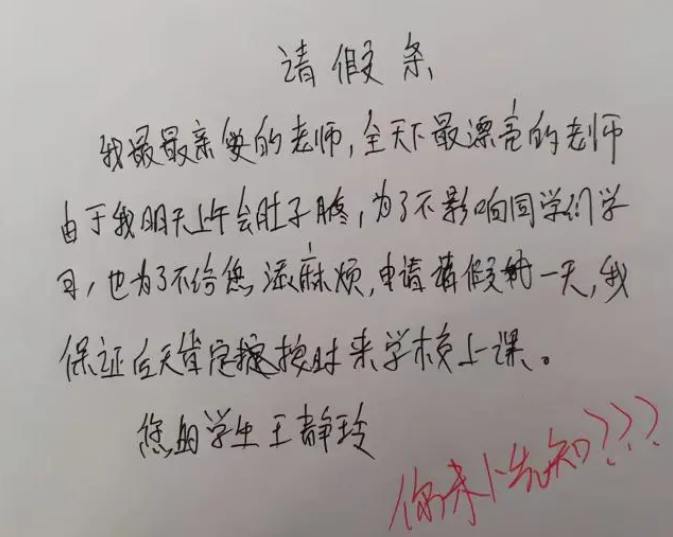 请假条
我最最亲爱的老师,全天下最漂亮的老师
由于我明天上午会肚子疼,为了不影响同学们学
习,也为了不给您添麻烦,申请请假一天,我
保证后天肯定按时来学校上课。
您的学生王静玲
你未卜先知???